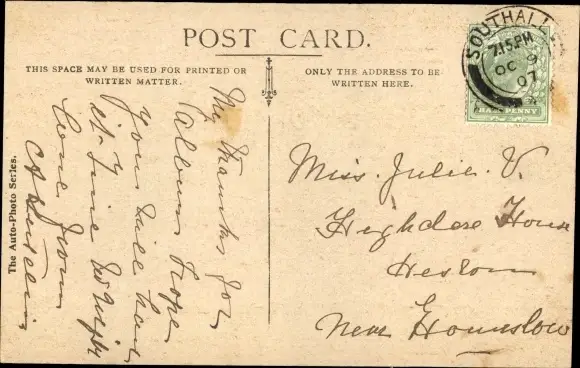 POST CARD.
THIS SPACE MAY BE USED FOR PRINTED OR
WRITTEN MATTER.
ONLY THE ADDRESS TO BE
WRITTEN HERE.
The Auto-Photo Series.
SOUTHALL
7.15.PM
OC 9
07
HALF PENNY
My thanks for
Album hope
you will have
it fine
Love from
Miss. Julie. V.
Highclere House
Heston
Near Hounslow